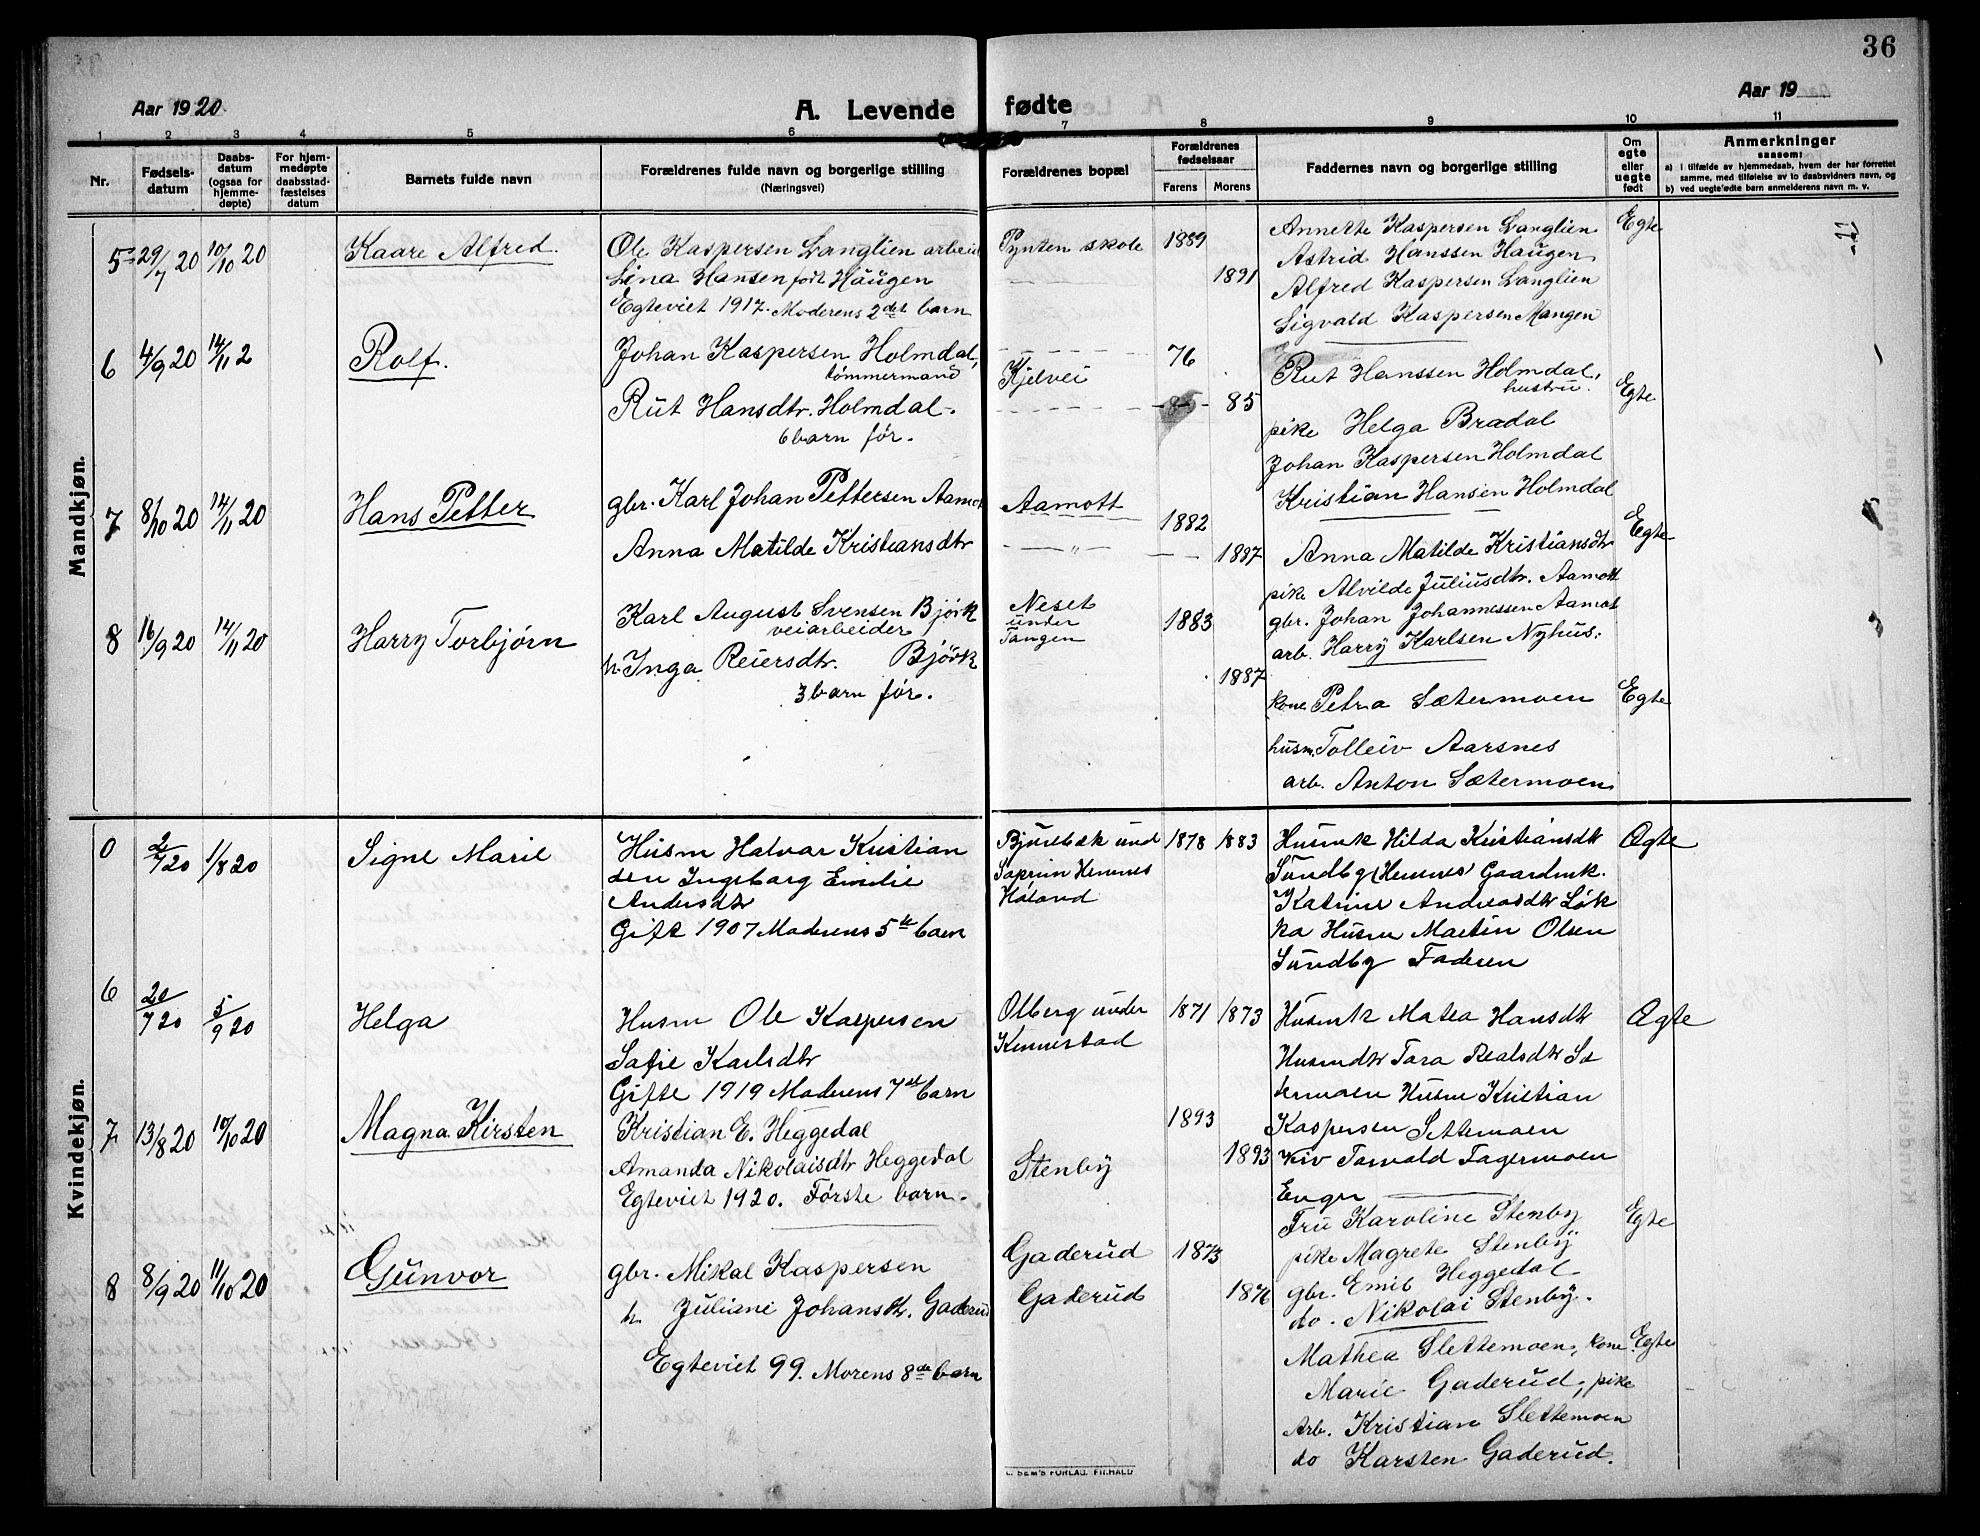 36
Aar 1920
A. Levende fødte
Aar 19
1 2 3 4 5 6 7 8 9 10 11
Nr.
Fødselsdatum
Daabsdatum (ogsaa for hjemmedøpte)
For hjemmedøpte daabsstadfæstelses datum
Barnets fulde navn
Forældrenes fulde navn og borgerlige stilling
(Næringsvei)
Forældrenes bopæl
Forældrenes fødselsaar
Farens Morens
Faddernes navn og borgerlige stilling
Om egte eller uegte født
Anmerkninger
saasom:
a) i tilfælde av hjemmedaab, hvem der har forrettet samme, med tilføielse av to daabsvidners navn, og
b) ved uegte fødte barn anmelderens navn m. v.
Mandkjøn.
5 29/7 20 10/10 20 Kaare Alfred.
Ole Kaspersen Langlien arbeid
Lina Hansen født Haugen
Egteviet 1917. Moderens 2det barn
Pynten skole 1889
1891
Annette Kaspersen Langlien
Astrid Hanssen Haugen
Alfred Kaspersen Langlien
Sigvald Kaspersen Mangen
Egte
6 4/9 20 14/11 2 Rolf.
Johan Kaspersen Holmdal,
tømmermand
Rut Hansdtr. Holmdal.
6 barn før.
Kjelvei
76
85
Rut Hanssen Holmdal,
hustru.
pike Helga Bradal
Johan Kaspersen Holmdal
Kristian Hansen Holmdal
Egte
7 8/10 20 14/11 20 Hans Petter
gbr. Karl Johan Pettersen Aamot
Anna Matilde Kristiansdtr
Aamott
1882
1887
Anna Matilde Kristiansdtr
pike Alvilde Juliusdtr. Aamott
gbr. Johan Johannessen Aamot
arb. Harry Karlsen Nyhus.
Egte
8 16/9 20 14/11 20 Harry Torbjørn
Karl August Svensen Bjørk
veiarbeider
h. Inga Reiersdtr. Bjørk
3 barn før.
Neset
under
Tangen
1883
1887
kone Petra Sætermoen
husm. Tolleiv Aarsnes
arb. Anton Sætermoen
Egte
Kvindekjøn.
0 2/7 20 1/8 20 Signe Marie
Husm Halvar Kristian
den Ingeborg Emilie
Andersdtr
Gift 1907 Moderens 5te barn
Hemnes
Høland
1878 1883
Husmk Hilda Kristiansdtr
Sundby (Hemnes) Gaardmk.
Katrine Andreasdtr Løk
ka Husm Martin Olsen
Sundby Faderen
Ægte
6 20/7 20 5/9 20 Helga
Husm Ole Kaspersen
Sofie Karlsdtr
Gifte 1919 Moderens 7de barn
Olberg under
Kinnestad
1871 1873
Husmk Matea Hansdtr
Husmdtr Tara
termoen Husm Kristian
Kaspersen Settemoen
Torvald Fagermoen
Enger
Ægte
7 13/8 20 10/10 20 Magna Kirsten
Kristian E. Heggedal
Amanda Nikolaisdtr Heggedal
Egteviet 1920. Første barn.
Stenby
1893
1893
Fru Karoline Stenby
pike Magrete Stenby
gbr. Emil Heggedal
do. Nikolai Stenby.
Egte
8 8/9 20 11/10 20 Gunvor
gbr. Mikal Kaspersen
h. Juliane Johansdtr. Gaderud
Egteviet 99. Morens 8de barn
Gaderud
Gaderud
1873
1876
Mathea Slettemoen, kone.
Marie Gaderud, pike
Arb. Kristian Slettemoen
do Karsten Gaderud.
Egte
E. SEM'S FORLAG. FR.HALD